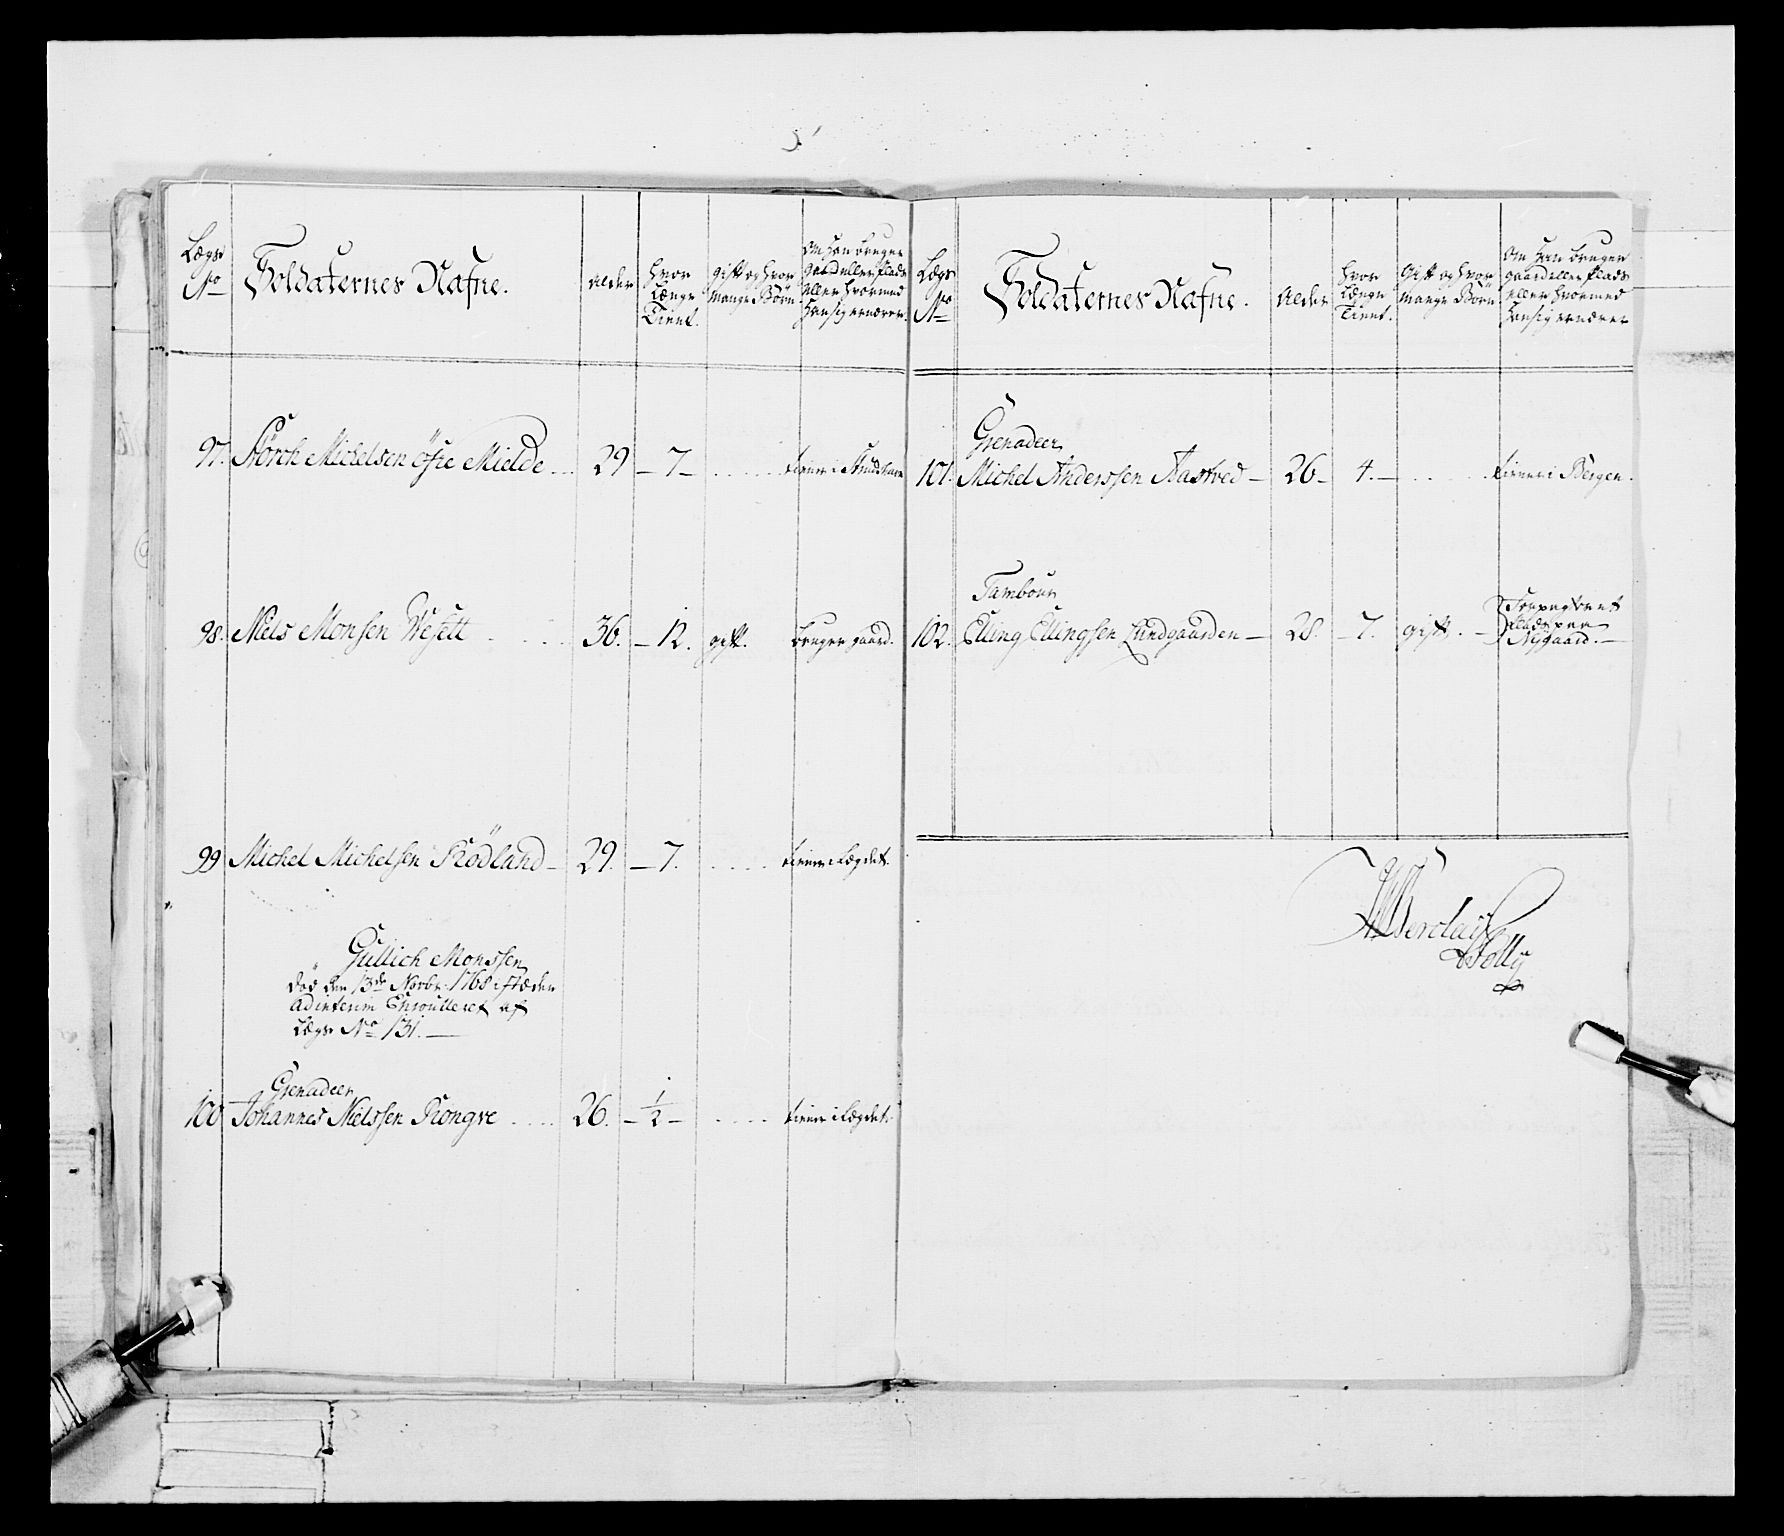 Lægs No
Soldaternes Nafne.
Alder
hvor Længe Tient.
gift og hvor mange Börn
Om han bruger gaard eller Plads eller hvormed han sig ernærer.
97. Störch Michelsen öfre Mielde 29 - 7 -
98. Niels Monsen Wesett 36. - 12. gift. bruger gaard.
99 Michel Michelsen Rödland - 29. - 7. tiener i Lægdet.
Gullich Monssen
död den 13de Novbr. 1768 i stæden
ad interim Enroulleret af
Lægs No 131. -
Grenadeer
100 Johannes Nielssen Rongve 26. - 1/2 - tiener i Lægdet.
Lægs No
Soldaternes Nafne.
Alder
hvor Længe Tient.
Gift og hvor mange Börn
Om han bruger gaard eller Plads eller hvormed han sig ernærer
Grenadeer
101. Michel Anderssen Aastved - 26 - 4. - tiener i Bergen.
Tambour
102. Elling Ellingsen Lundgaarden - 28. - 7. gift. -
Plads
Nygaard. -